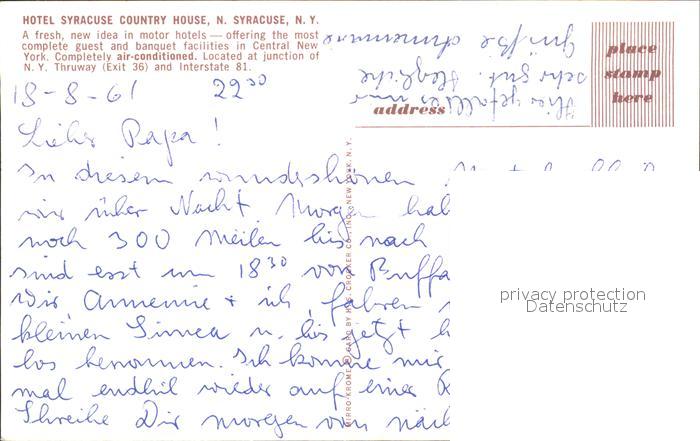 HOTEL SYRACUSE COUNTRY HOUSE, N. SYRACUSE, N. Y.
A fresh, new idea in motor hotels — offering the most
complete guest and banquet facilities in Central New
York. Completely air-conditioned. Located at junction of
N. Y. Thruway (Exit 36) and Interstate 81.
place
stamp
here
address
Hier gefällt es mir
sehr gut. Herzliche
Grüße Annemarie
18-8-61 22 30
Lieber Papa!
In diesem wunderschönen
wir über Nacht. Morgen hab
noch 300 Meilen bis nach
sind erst um 18 30 von Buffa
Wir Annemie + ich fahren
kleinen Simca u. bis jetzt h
los benommen. Ich komme mir
mal endlich wieder auf einer
Schreibe Dir morgen von
MIRRO-KROME CARD BY H.S. CROCKER CO., INC., NEW YORK, N. Y.
privacy protection
Datenschutz